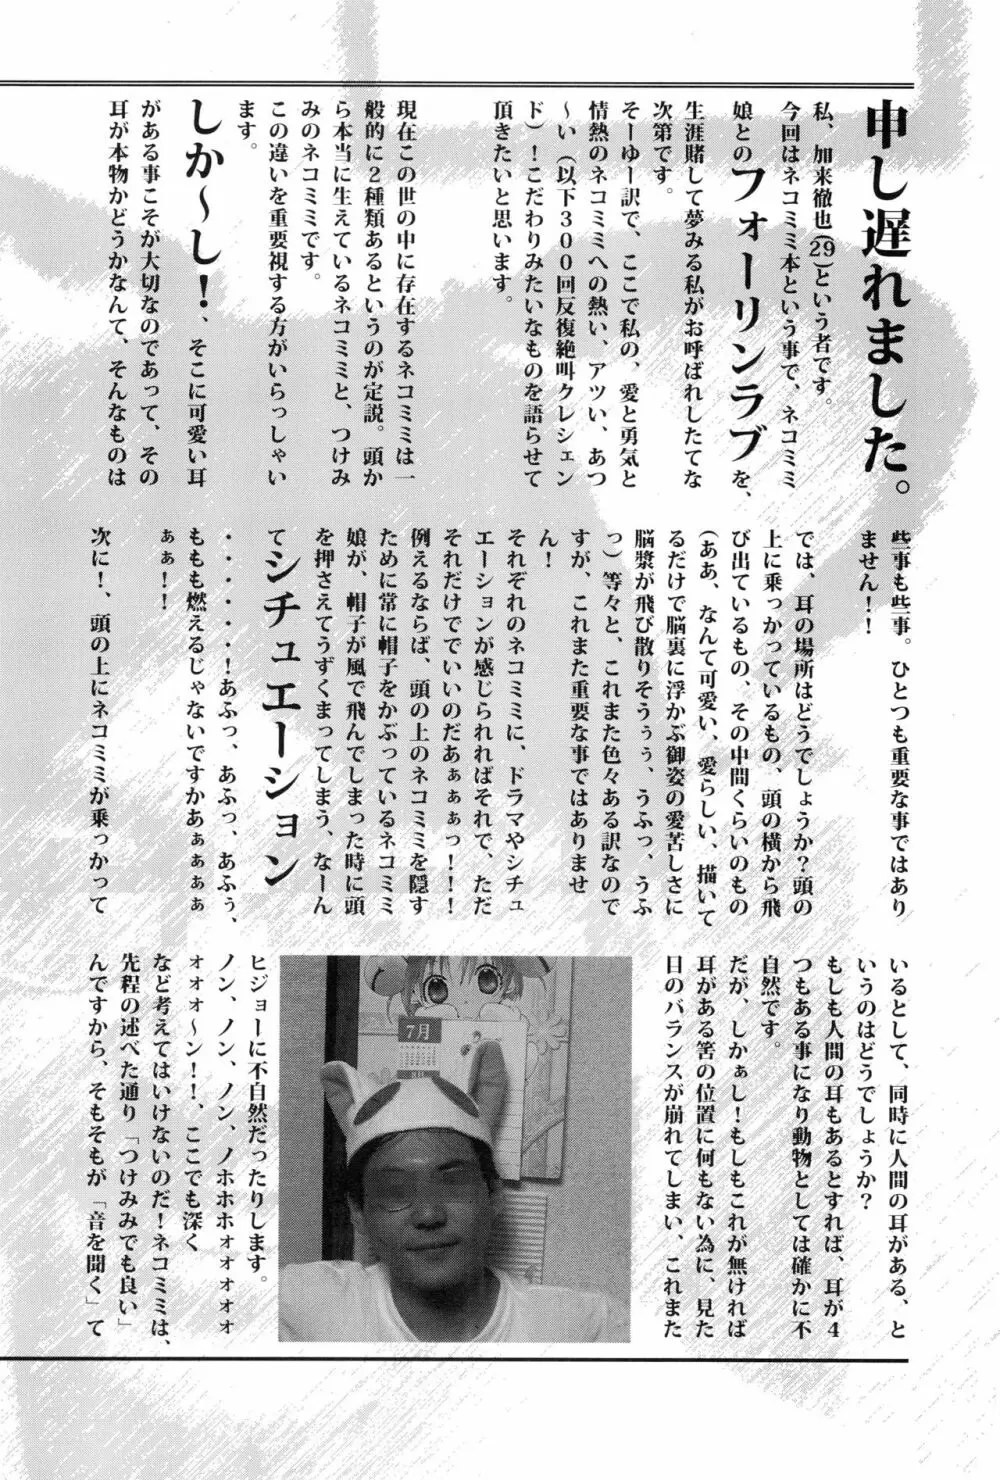 申し遅れました。
私、加来徹也(29)という者です。
今回はネコミミ本という事で、ネコミミ
娘とのフォーリンラブを、
生涯賭して夢みる私がお呼ばれしたてな
次第です。
そーゆー訳で、ここで私の、愛と勇気と
情熱のネコミミへの熱い、アツい、あつ
～い(以下300回反復絶叫クレシェン
ド)！こだわりみたいなものを語らせて
頂きたいと思います。
現在この世の中に存在するネコミミは一
般的に2種類あるというのが定説。頭か
ら本当に生えているネコミミと、つけみ
みのネコミミです。
この違いを重要視する方がいらっしゃい
ます。
しか～し！、そこに可愛い耳
がある事こそが大切なのであって、その
耳が本物かどうかなんて、そんなものは
些事も些事。ひとつも重要な事ではあり
ません！！
では、耳の場所はどうでしょうか？頭の
上に乗っかっているもの、頭の横から飛
び出ているもの、その中間くらいのもの
(ああ、なんて可愛い、愛らしい、描いて
るだけで脳裏に浮かぶ御姿の愛苦しさに
脳漿が飛び散りそうぅぅ、うふっ、うふ
っ)等々と、これまた色々ある訳なので
すが、これまた重要な事ではありませ
ん！
それぞれのネコミミに、ドラマやシチュ
エーションが感じられればそれで、ただ
それだけでいいのだあぁぁぁっ！！！
例えるならば、頭の上のネコミミを隠す
ために常に帽子をかぶっているネコミミ
娘が、帽子が風で飛んでしまった時に頭
を押さえてうずくまってしまう、なーん
てシチュエーション
・・・・・・！あふっ、あふっ、あふぅ、
ももも燃えるじゃないですかあぁぁぁぁ
ぁぁ！！
次に！、頭の上にネコミミが乗っかって
いるとして、同時に人間の耳がある、と
いうのはどうでしょうか？
もしも人間の耳もあるとすれば、耳が4
つもある事になり動物としては確かに不
自然です。
だが、しかぁし！もしもこれが無ければ
耳がある筈の位置に何もない為に、見た
目のバランスが崩れてしまい、これまた
7月
ヒジョーに不自然だったりします。
ノン、ノン、ノン、ノホホホォォォォ
ォォォ～ン！！、ここでも深く
など考えてはいけないのだ！ネコミミは、
先程の述べた通り「つけみみでも良い」
んですから、そもそもが「音を聞く」て